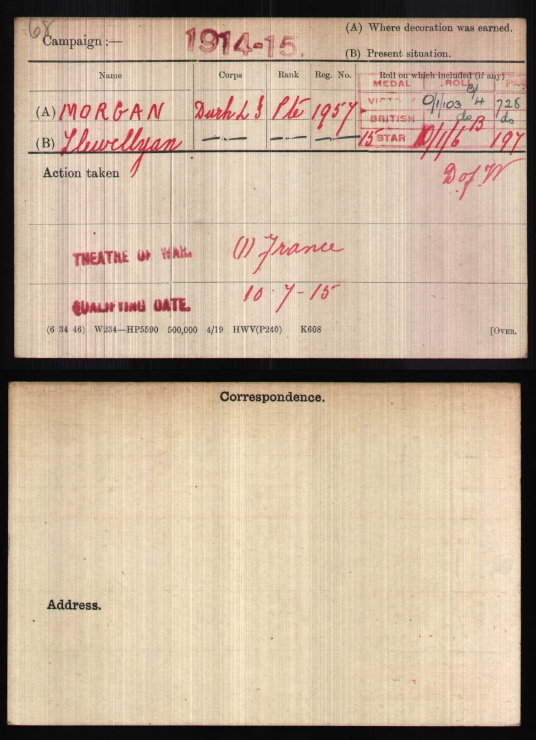 68
(A) Where decoration was earned.
Campaign :— 1914-15.
(B) Present situation.
Name Corps Rank Reg. No. Roll on which included (if any)
MEDAL ROLL PAGE
(A) MORGAN Durh L I Pte 1957 VICTORY 0/1/103 B4 728
BRITISH do do
(B) Llewellyan — — — 15 STAR 0/1/6 B 197
Action taken D of W
THEATRE OF WAR. (1) France
QUALIFYING DATE. 10-7-15
(6 34 46) W234—HP5590 500,000 4/19 HWV(P240) K608 [OVER.
Correspondence.
Address.